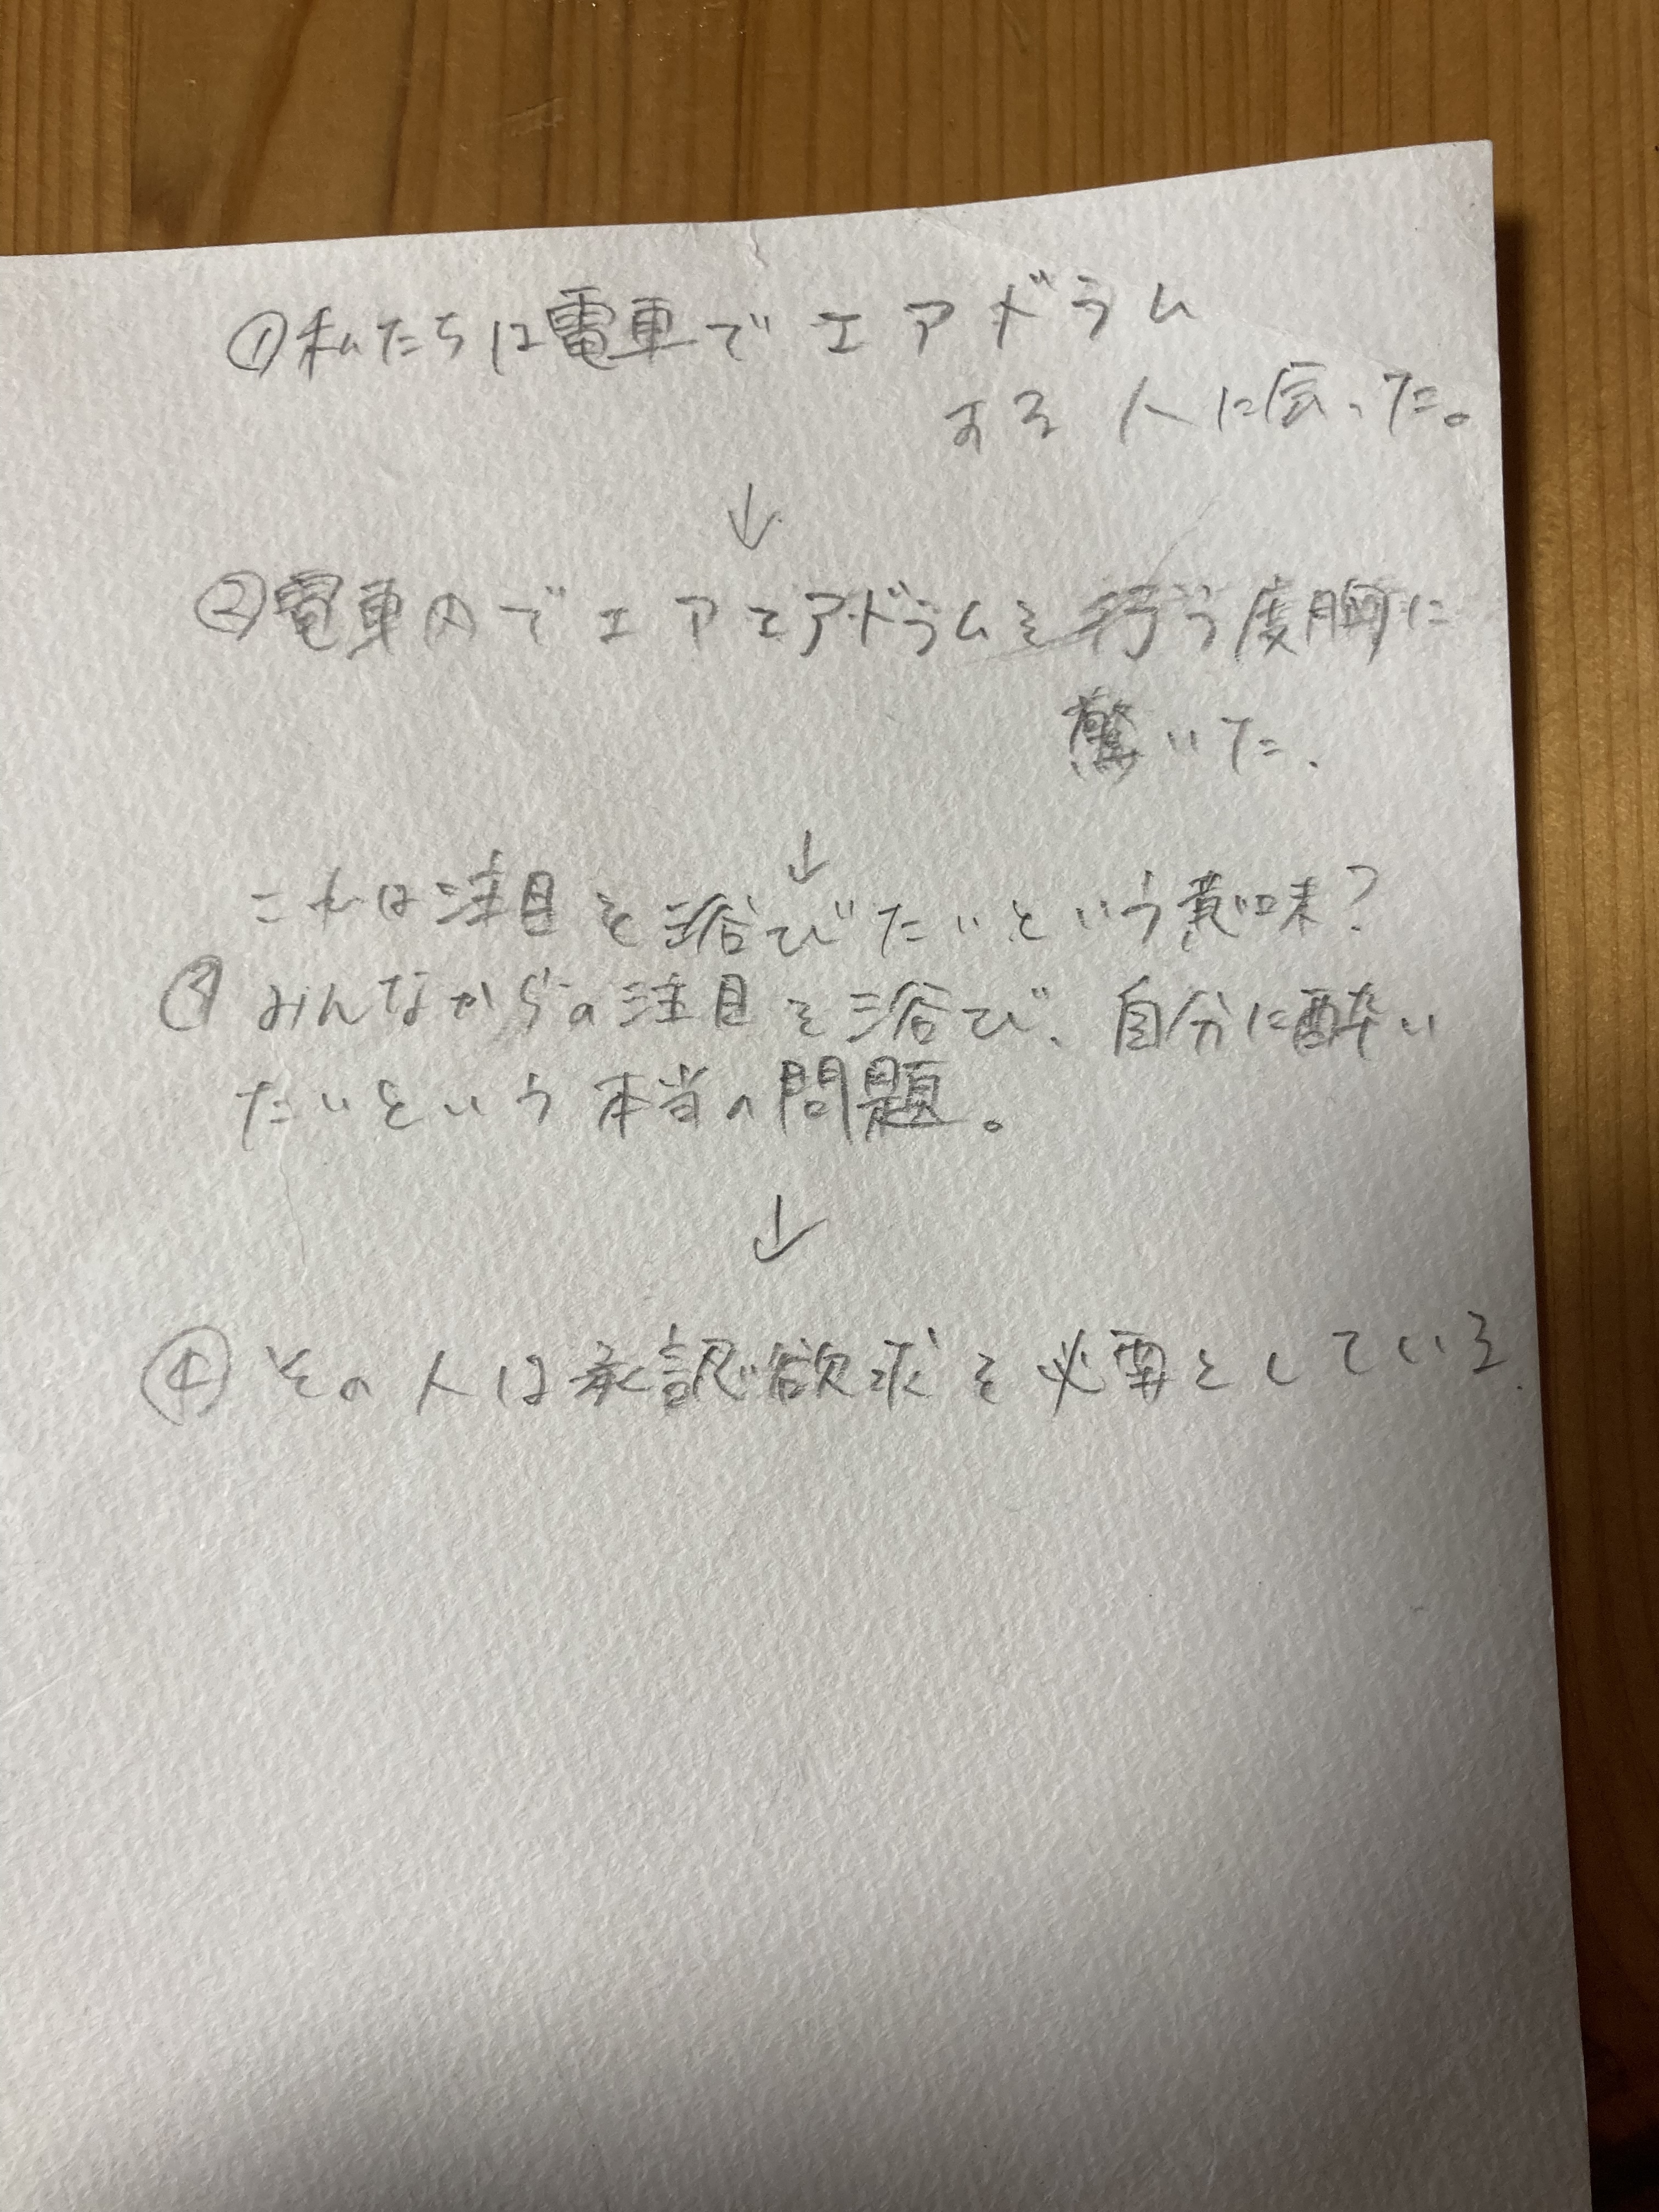 ①私たちは電車でエアドラム
する人に会った。
↓
②電車内でエアエアドラムを行う度胸に
驚いた.
↓
これは注目を浴びたいという意味?
③みんなからの注目を浴び、自分に酔い
たいという本当の問題。
↓
④その人は承認欲求を必要としている.